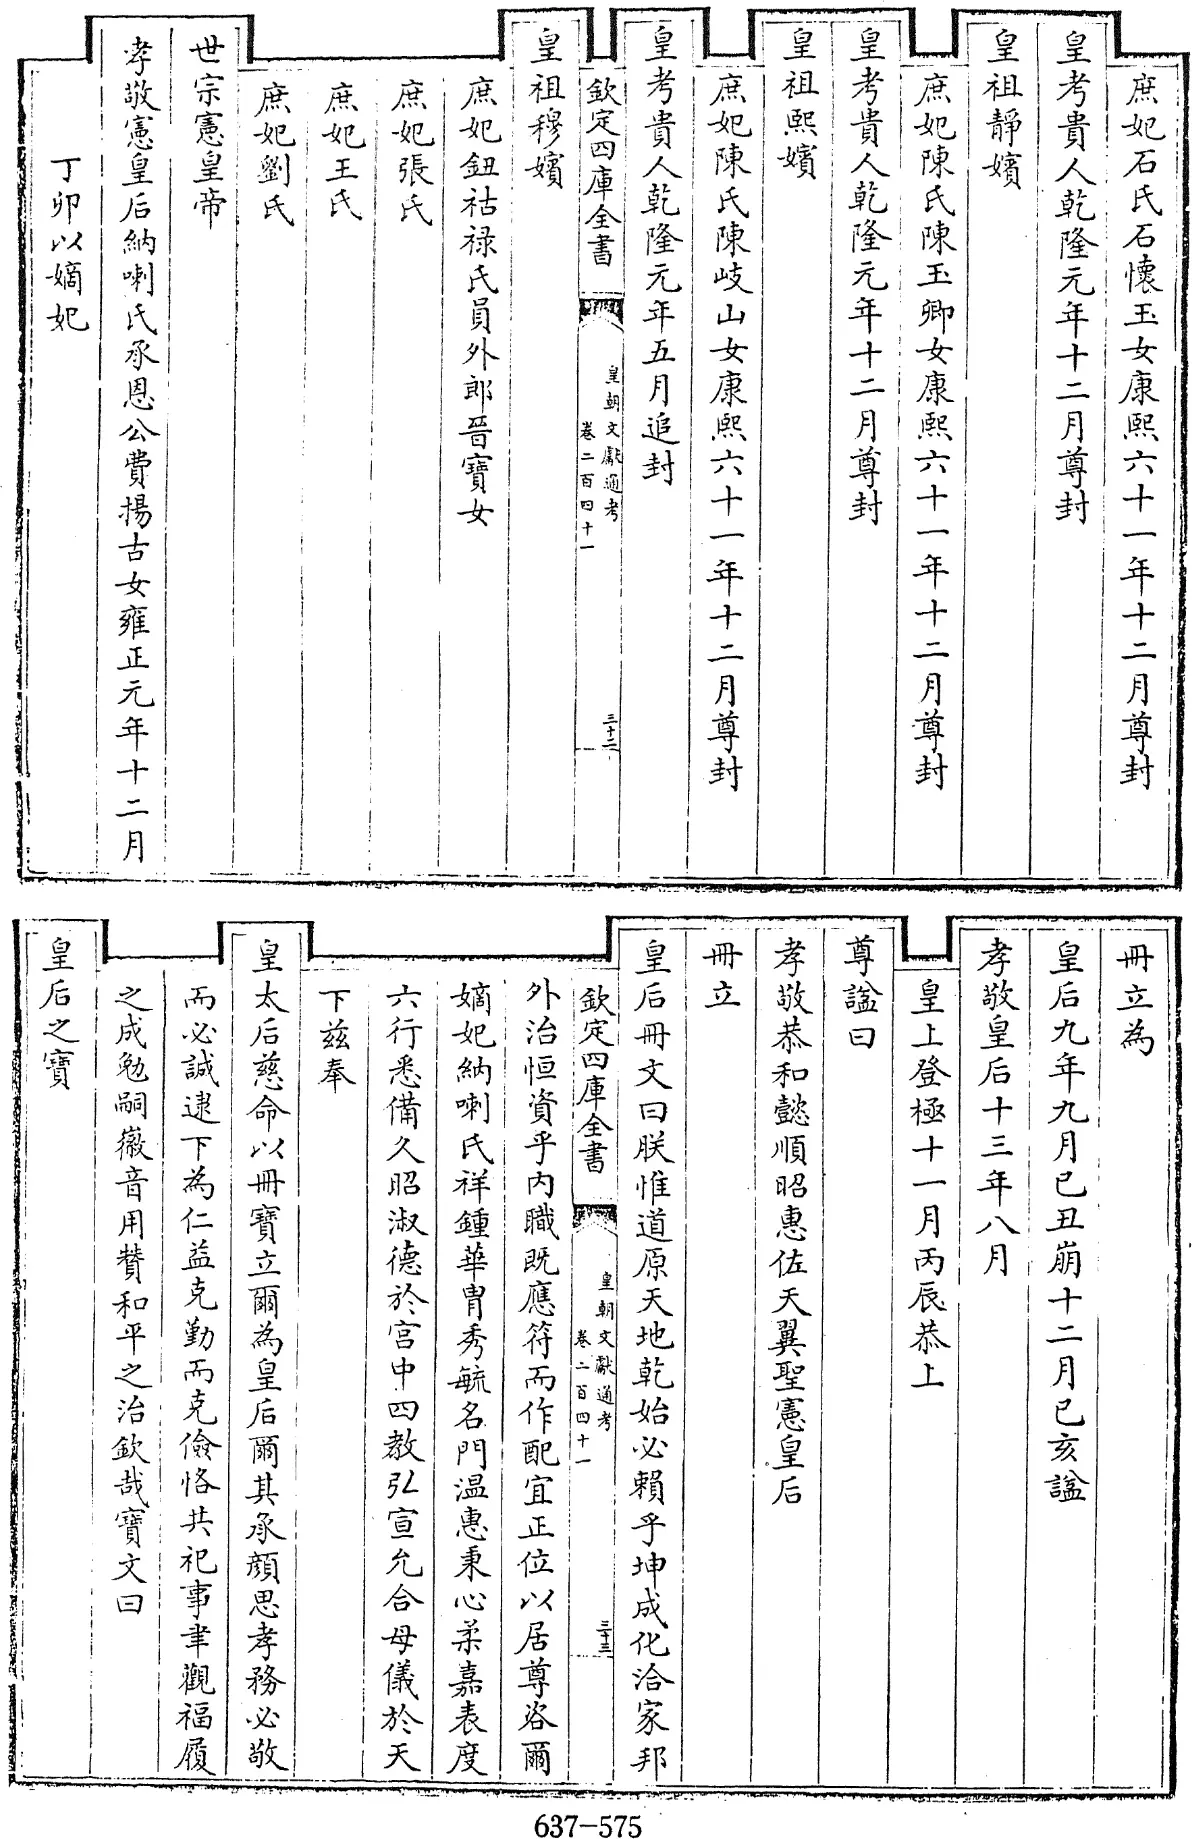 庶妃石氏石懷玉女康熙六十一年十二月尊封
皇考貴人乾隆元年十二月尊封
皇祖靜嬪
庶妃陳氏陳玉卿女康熙六十一年十二月尊封
皇考貴人乾隆元年十二月尊封
皇祖熙嬪
庶妃陳氏陳岐山女康熙六十一年十二月尊封
皇考貴人乾隆元年五月追封
欽定四庫全書
皇朝文獻通考
卷二百四十一
三十二
皇祖穆嬪
庶妃鈕祜祿氏員外郎晉寶女
庶妃張氏
庶妃王氏
庶妃劉氏
世宗憲皇帝
孝敬憲皇后納喇氏承恩公費揚古女雍正元年十二月
丁卯以嫡妃
冊立為
皇后九年九月己丑崩十二月己亥諡
孝敬皇后十三年八月
皇上登極十一月丙辰恭上
尊諡曰
孝敬恭和懿順昭惠佐天翼聖憲皇后
冊立
皇后冊文曰朕惟道原天地乾始必賴乎坤成化洽家邦
欽定四庫全書
皇朝文獻通考
卷二百四十一
三十三
外治恒資乎內職既應符而作配宜正位以居尊咨爾
嫡妃納喇氏祥鍾華冑秀毓名門温惠秉心柔嘉表度
六行悉備久昭淑德於宮中四教弘宣允合母儀於天
下兹奉
皇太后慈命以冊寶立爾為皇后爾其承顏思孝務必敬
而必誠逮下為仁益克勤而克儉恪共祀事聿觀福履
之成勉嗣徽音用贊和平之治欽哉寶文曰
皇后之寶
637-575